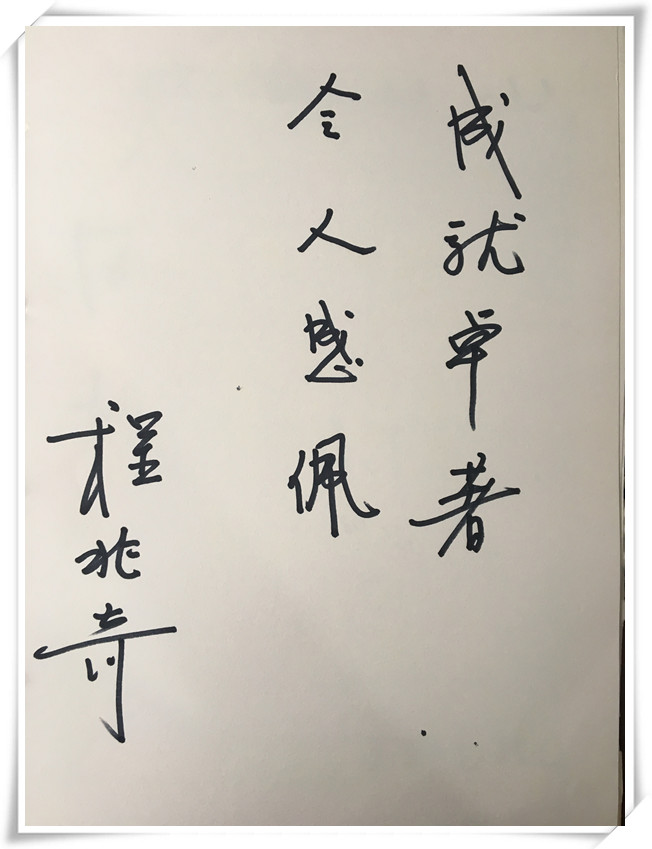 成就卓著
令人感佩
程兆奇